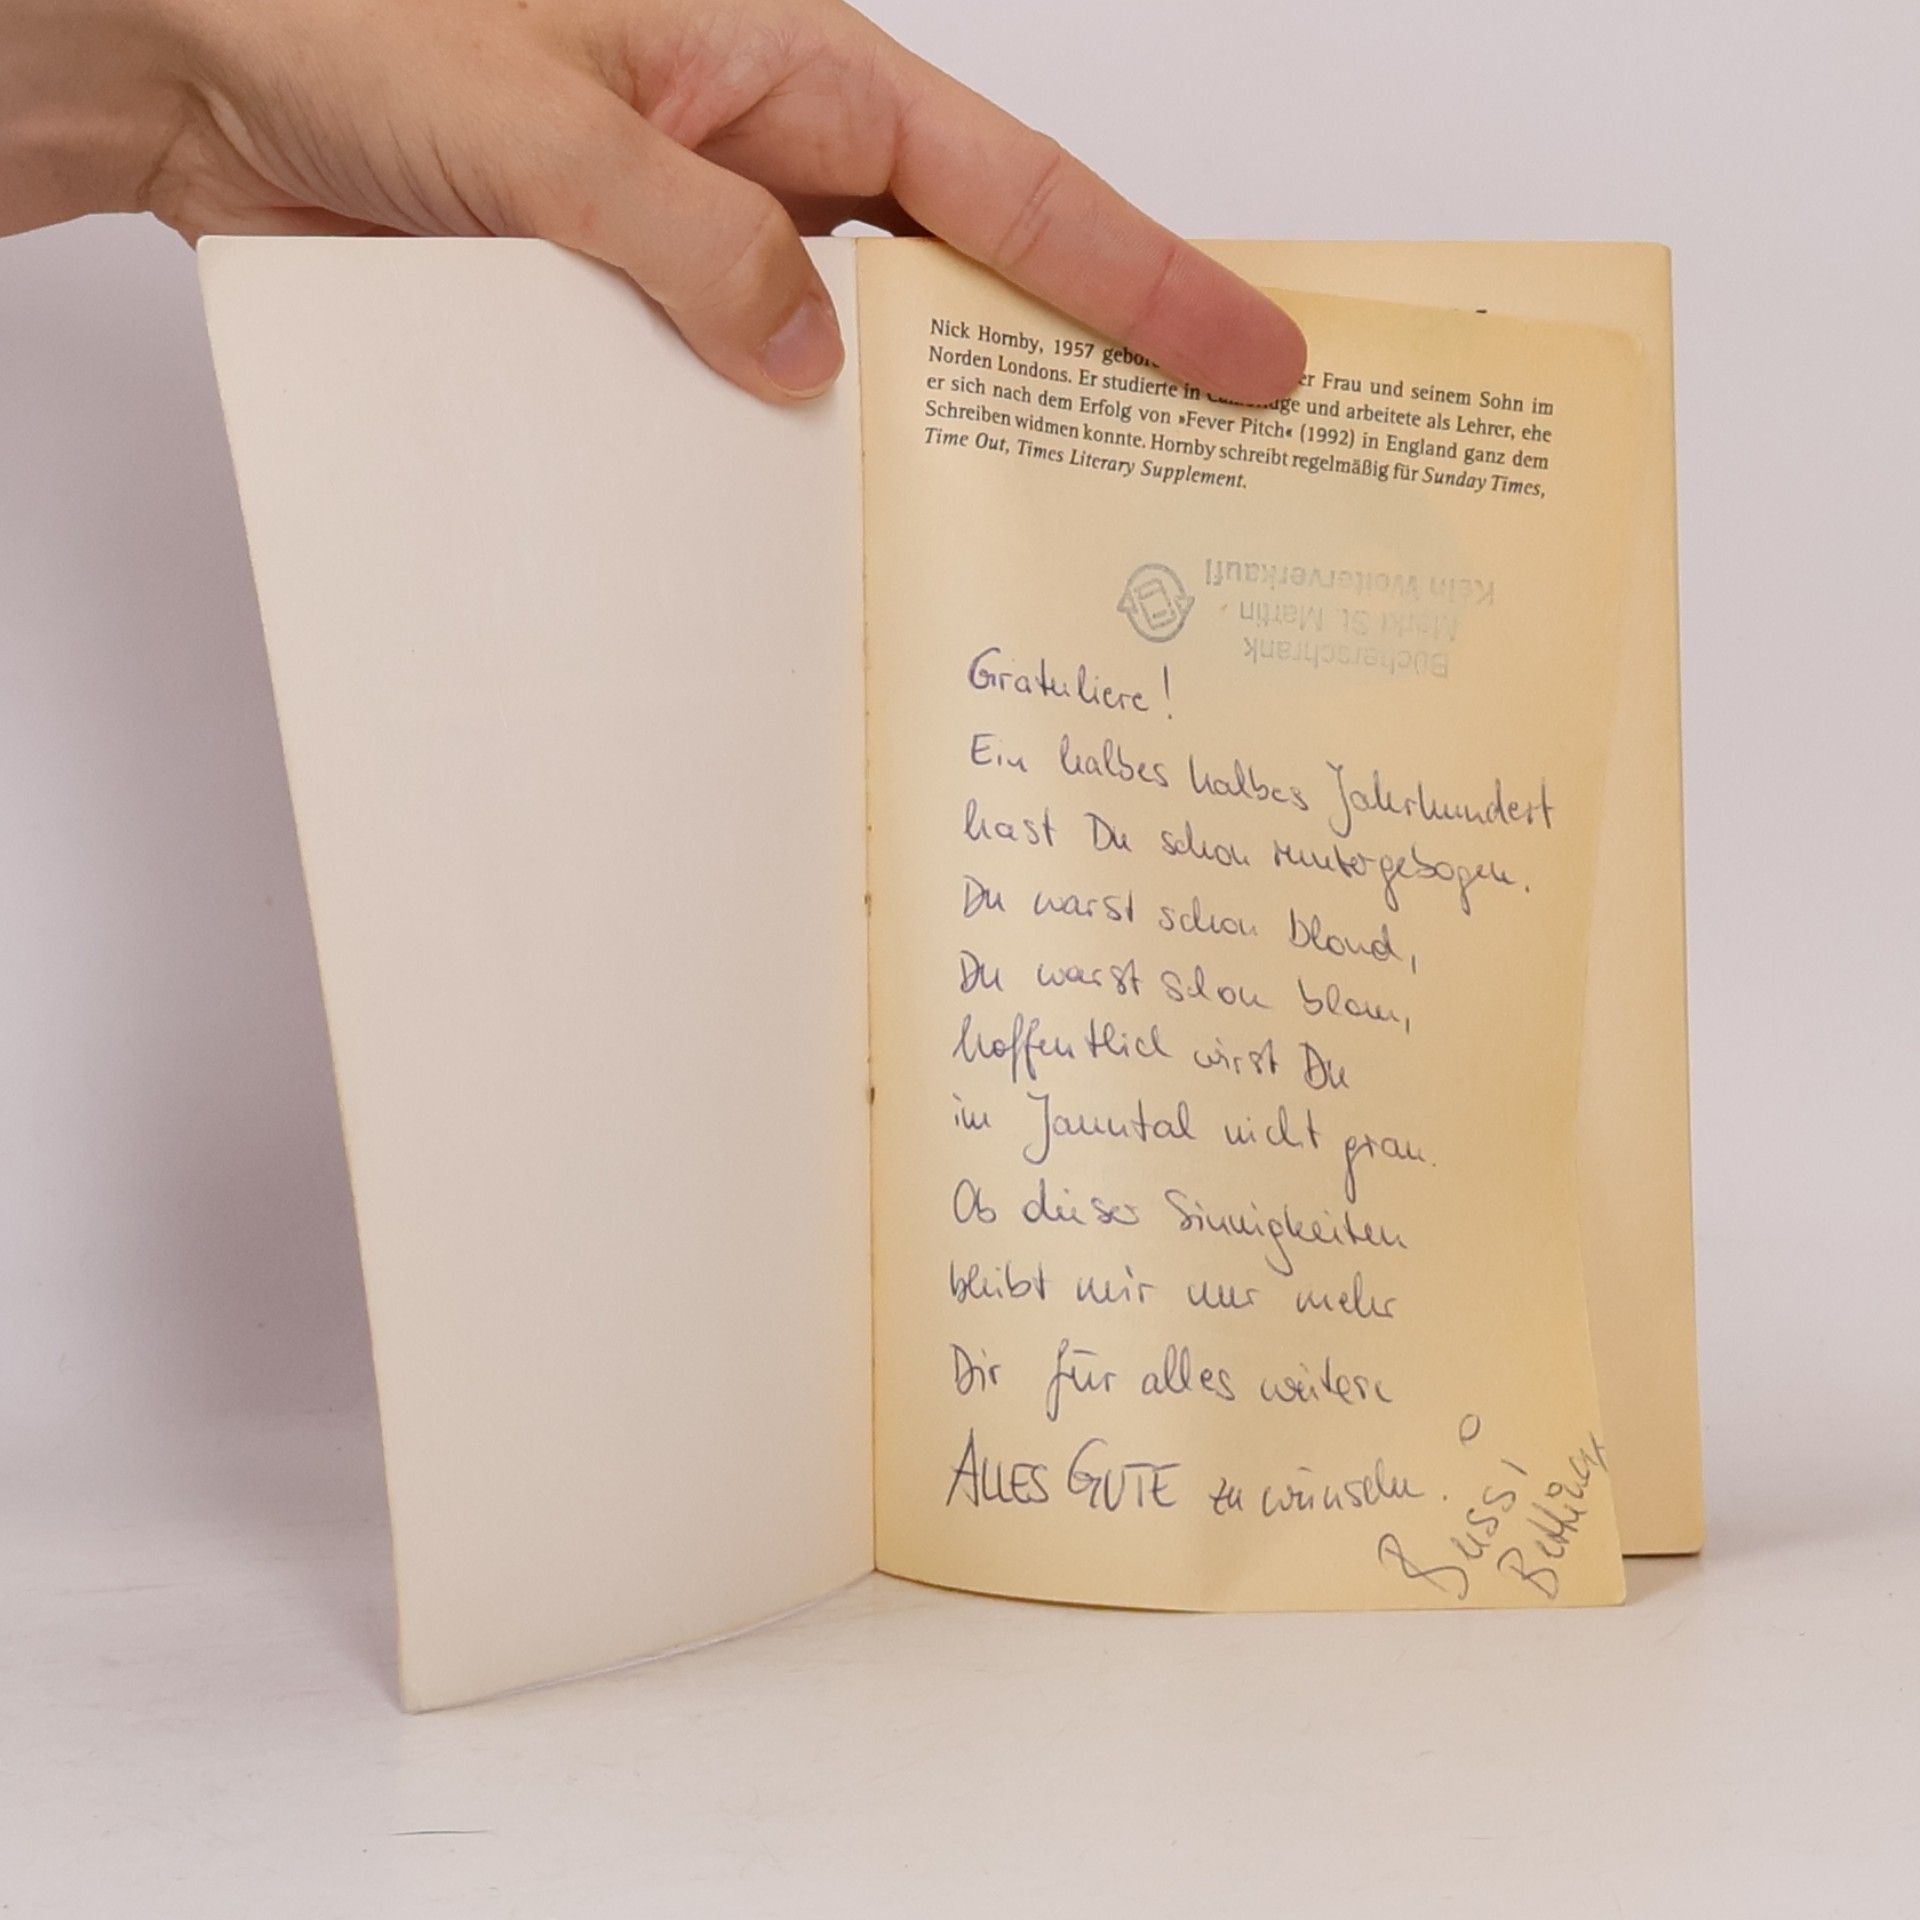 Nick Hornby, 1957 gebor er Frau und seinem Sohn im
Norden Londons. Er studierte in Cambridge und arbeitete als Lehrer, ehe
er sich nach dem Erfolg von »Fever Pitch« (1992) in England ganz dem
Schreiben widmen konnte. Hornby schreibt regelmäßig für Sunday Times,
Time Out, Times Literary Supplement.
Bücherschrank
Markt St. Martin
Kein Weiterverkauf!
Gratuliere!
Ein halbes halbes Jahrhundert
hast Du schon runtergebogen.
Du warst schon blond,
Du warst schon blau,
hoffentlich wirst Du
im Jauntal nicht grau.
Ob dieser Sinnigkeiten
bleibt mir nur mehr
Dir für alles weitere
ALLES GUTE zu wünschen.
Bussi
Bettina